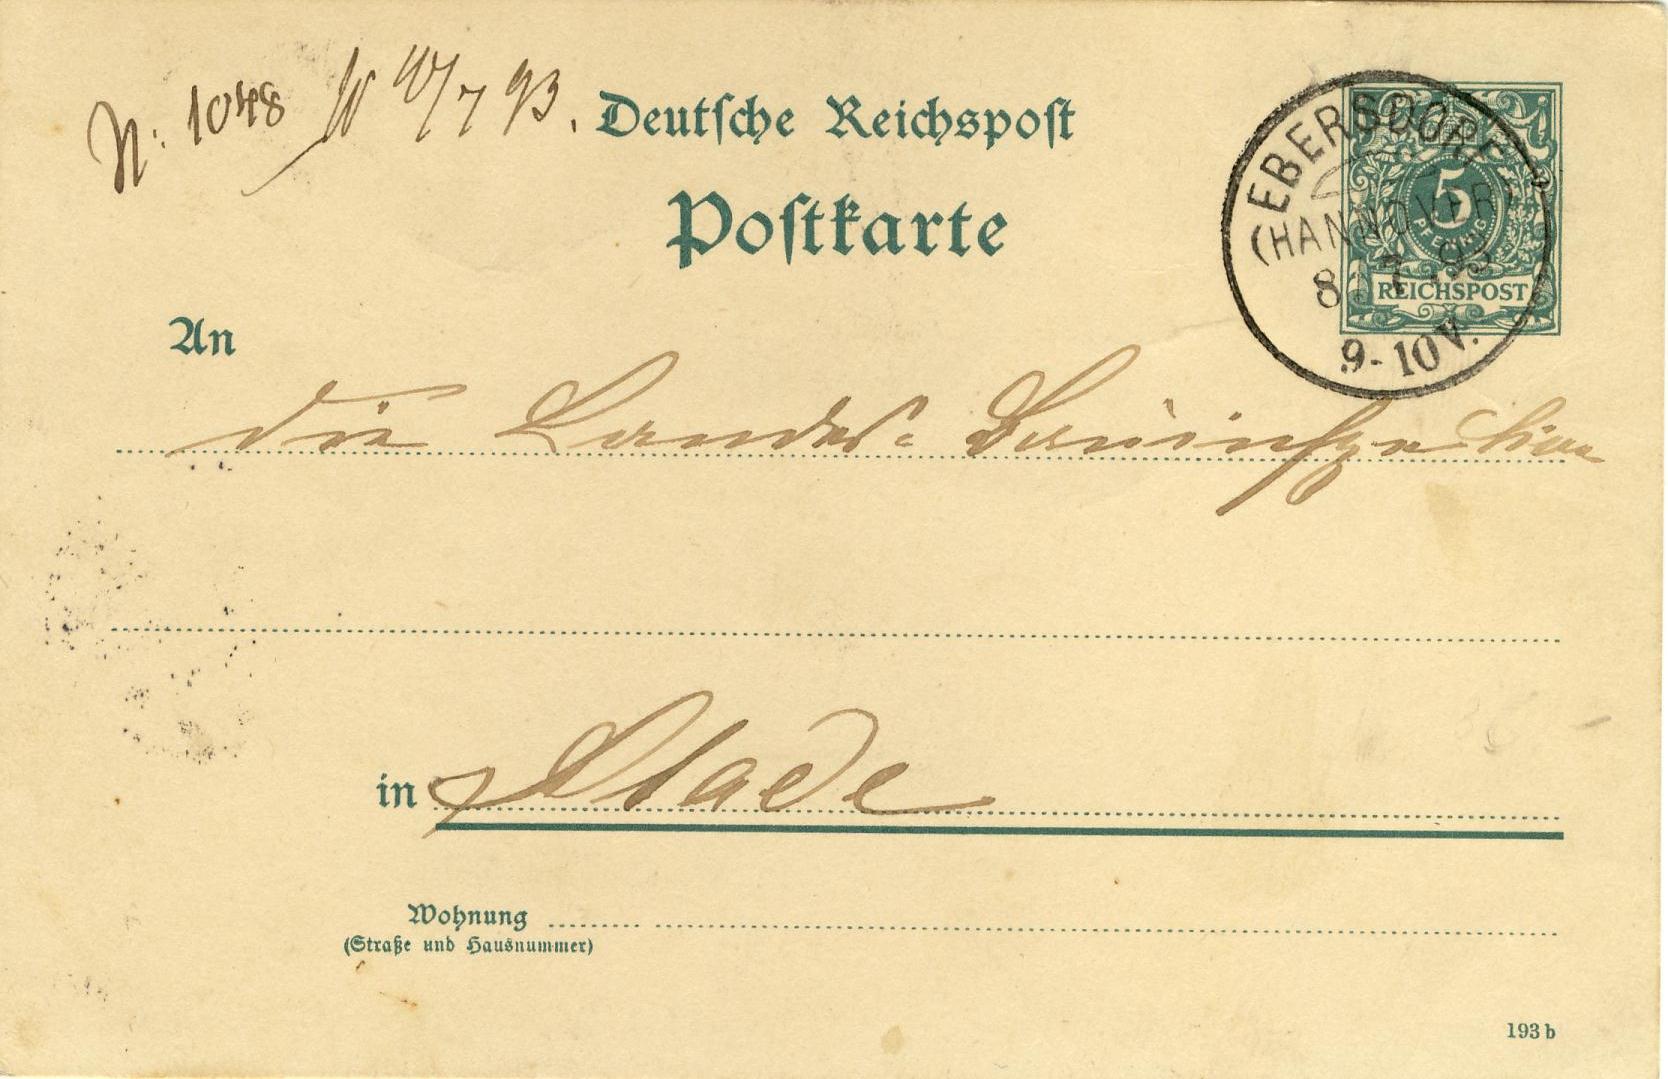 N: 1048 /7 93.
Deutsche Reichspost
Postkarte
EBERSDORF
(HANNOVER)
8 7 93
9-10V.
5
PFENNIG
REICHSPOST
An
die Landes-Bauinspection
in Stade
Wohnung
(Straße und Hausnummer)
193 b